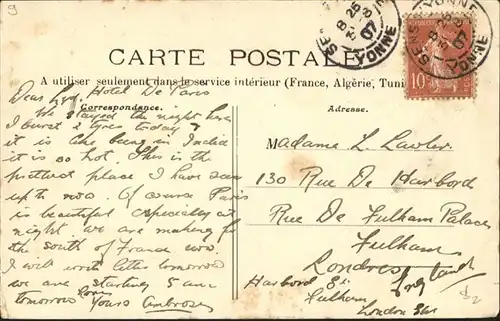 9
SENS YONNE
8 25
3 -8
07
SENS YONNE
8 25
3 -8
07
10
CARTE POSTALE
A utiliser seulement dans le service intérieur (France, Algérie, Tuni
Correspondance.
Adresse.
Hotel De Paris
Dear
We stayed the night here
I burst 2 tyres today
it is like being in India
it is so hot. This is the
prettiest place I have seen
up to now. Of course Paris
is beautiful especially at
night. We are making for
the south of France now.
I will write letter tomorrow
we are starting 5 am
tomorrow Love
Yours Ambrose
Madame L. Lawler
130 Rue De Harbord
Rue De Fulham Palace
Fulham
Londres
Harbord St
Fulham
London